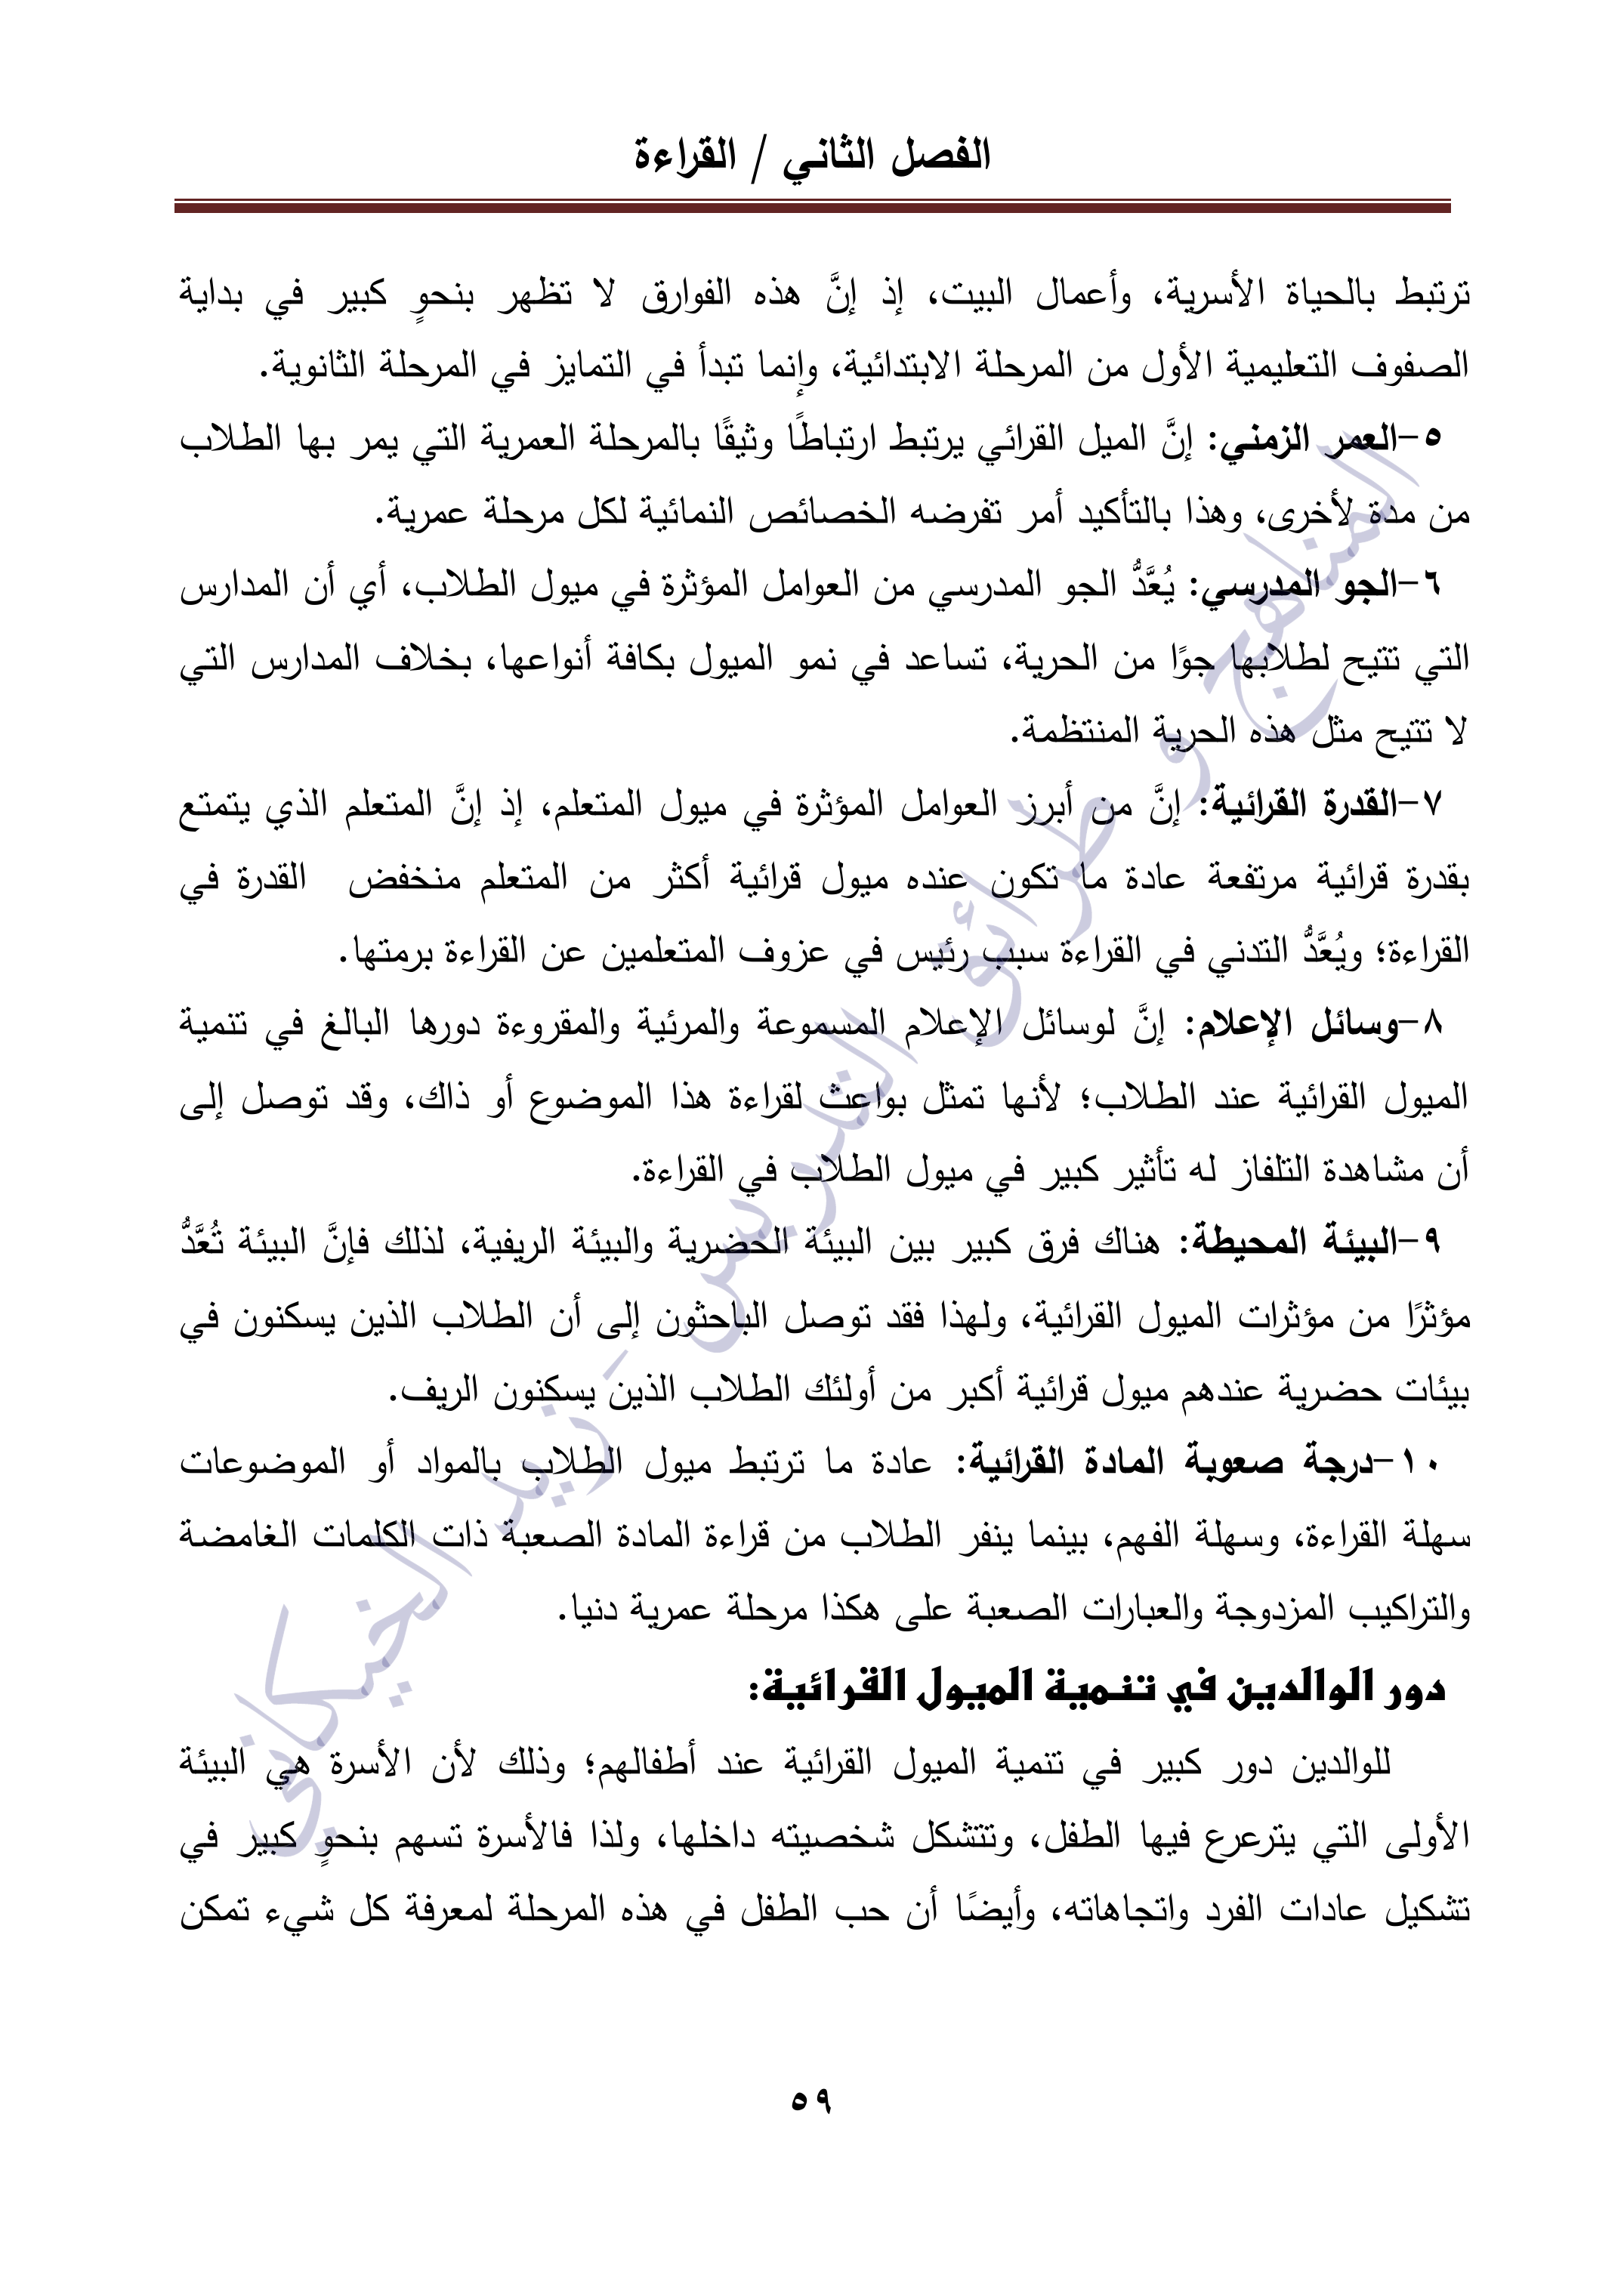 الفصل الثاني / القراءة
ترتبط بالحياة الأسرية، وأعمال البيت، إذ إنَّ هذه الفوارق لا تظهر بنحوٍ كبير في بداية
الصفوف التعليمية الأول من المرحلة الابتدائية، وإنما تبدأ في التمايز في المرحلة الثانوية.
٥-العمر الزمني: إنَّ الميل القرائي يرتبط ارتباطًا وثيقًا بالمرحلة العمرية التي يمر بها الطلاب
من مدة لأخرى، وهذا بالتأكيد أمر تفرضه الخصائص النمائية لكل مرحلة عمرية.
٦-الجو المدرسي: يُعَّدُّ الجو المدرسي من العوامل المؤثرة في ميول الطلاب، أي أن المدارس
التي تتيح لطلابها جوًا من الحرية، تساعد في نمو الميول بكافة أنواعها، بخلاف المدارس التي
لا تتيح مثل هذه الحرية المنتظمة.
٧-القدرة القرائية: إنَّ من أبرز العوامل المؤثرة في ميول المتعلم، إذ إنَّ المتعلم الذي يتمتع
بقدرة قرائية مرتفعة عادة ما تكون عنده ميول قرائية أكثر من المتعلم منخفض القدرة في
القراءة؛ ويُعَّدُّ التدني في القراءة سبب رئيس في عزوف المتعلمين عن القراءة برمتها.
٨-وسائل الإعلام: إنَّ لوسائل الإعلام المسموعة والمرئية والمقروءة دورها البالغ في تنمية
الميول القرائية عند الطلاب؛ لأنها تمثل بواعث لقراءة هذا الموضوع أو ذاك، وقد توصل إلى
أن مشاهدة التلفاز له تأثير كبير في ميول الطلاب في القراءة.
٩-البيئة المحيطة: هناك فرق كبير بين البيئة الحضرية والبيئة الريفية، لذلك فإنَّ البيئة تُعَّدُّ
مؤثرًا من مؤثرات الميول القرائية، ولهذا فقد توصل الباحثون إلى أن الطلاب الذين يسكنون في
بيئات حضرية عندهم ميول قرائية أكبر من أولئك الطلاب الذين يسكنون الريف.
١٠-درجة صعوبة المادة القرائية: عادة ما ترتبط ميول الطلاب بالمواد أو الموضوعات
سهلة القراءة، وسهلة الفهم، بينما ينفر الطلاب من قراءة المادة الصعبة ذات الكلمات الغامضة
والتراكيب المزدوجة والعبارات الصعبة على هكذا مرحلة عمرية دنيا.
دور الوالدين في تنمية الميول القرائية:
للوالدين دور كبير في تنمية الميول القرائية عند أطفالهم؛ وذلك لأن الأسرة هي البيئة
الأولى التي يترعرع فيها الطفل، وتتشكل شخصيته داخلها، ولذا فالأسرة تسهم بنحوٍ كبير في
تشكيل عادات الفرد واتجاهاته، وأيضًا أن حب الطفل في هذه المرحلة لمعرفة كل شيء تمكن
٥٩
المناهج و طرائق التدريس - زيد الخيكاني